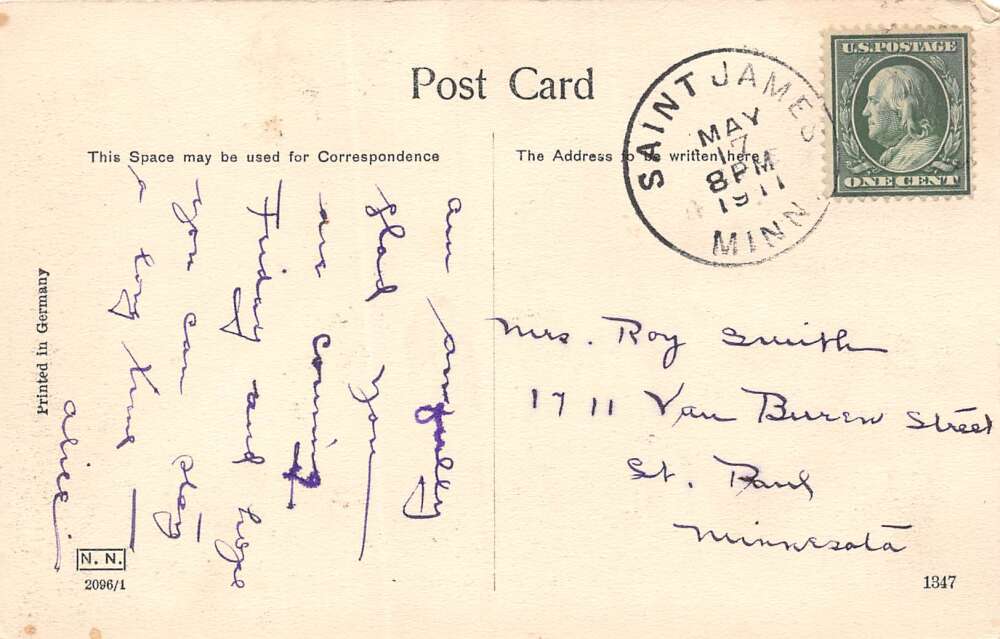 Post Card
SAINT JAMES
MAY
17
8 PM
1911
MINN.
U.S. POSTAGE
ONE CENT
This Space may be used for Correspondence
The Address to be written here
am
glad you
are coming
Friday and hope
you can stay
a long time
Alice
Mrs. Roy Smith
1711 Van Buren Street
St. Paul
Minnesota
Printed in Germany
N. N.
2096/1
1347